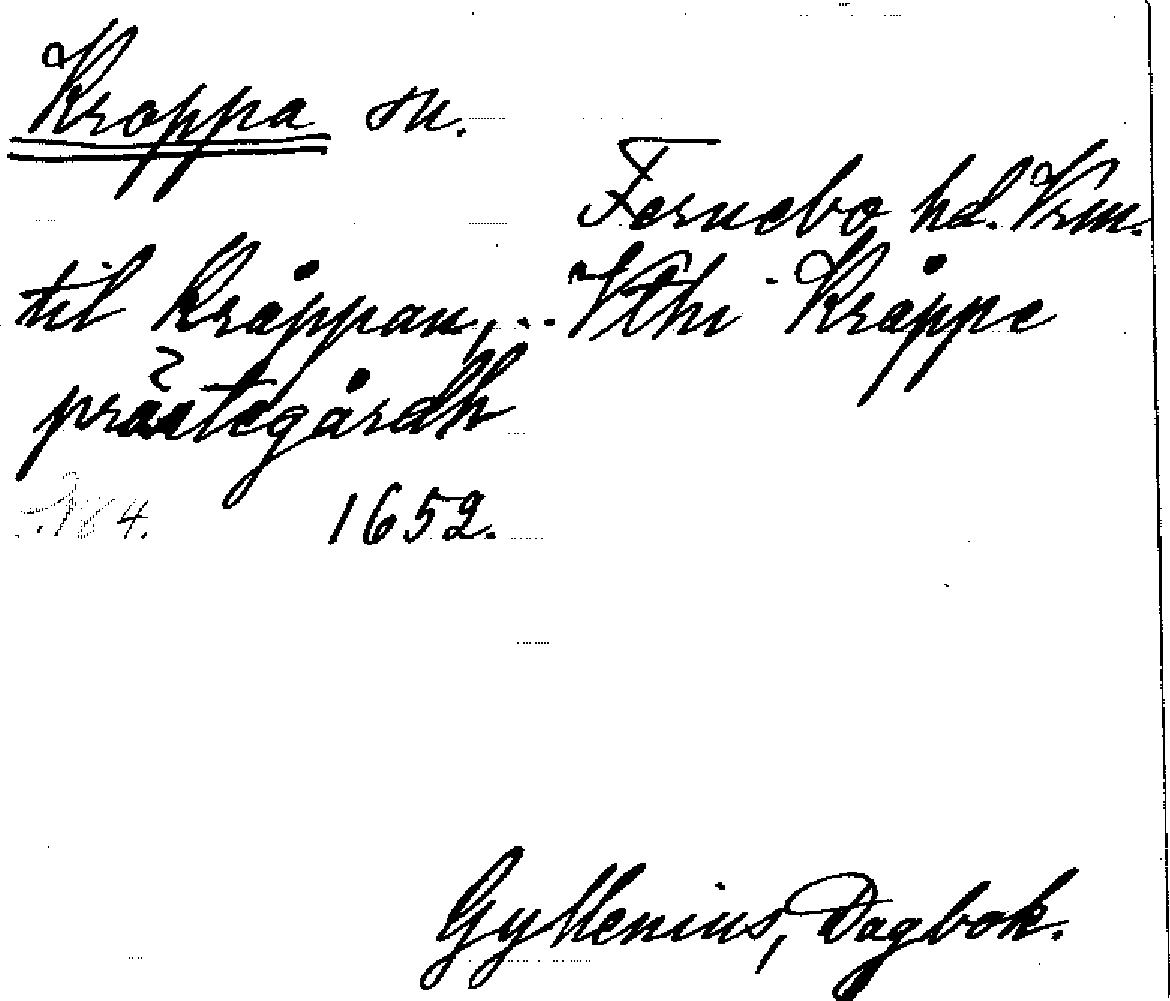 Kroppa sn.
Fernebo hd. Vrm.
til Kråppan, .. Vthi Kråppe
prästegårdh
184. 1652.
Gyllenius, Dagbok.